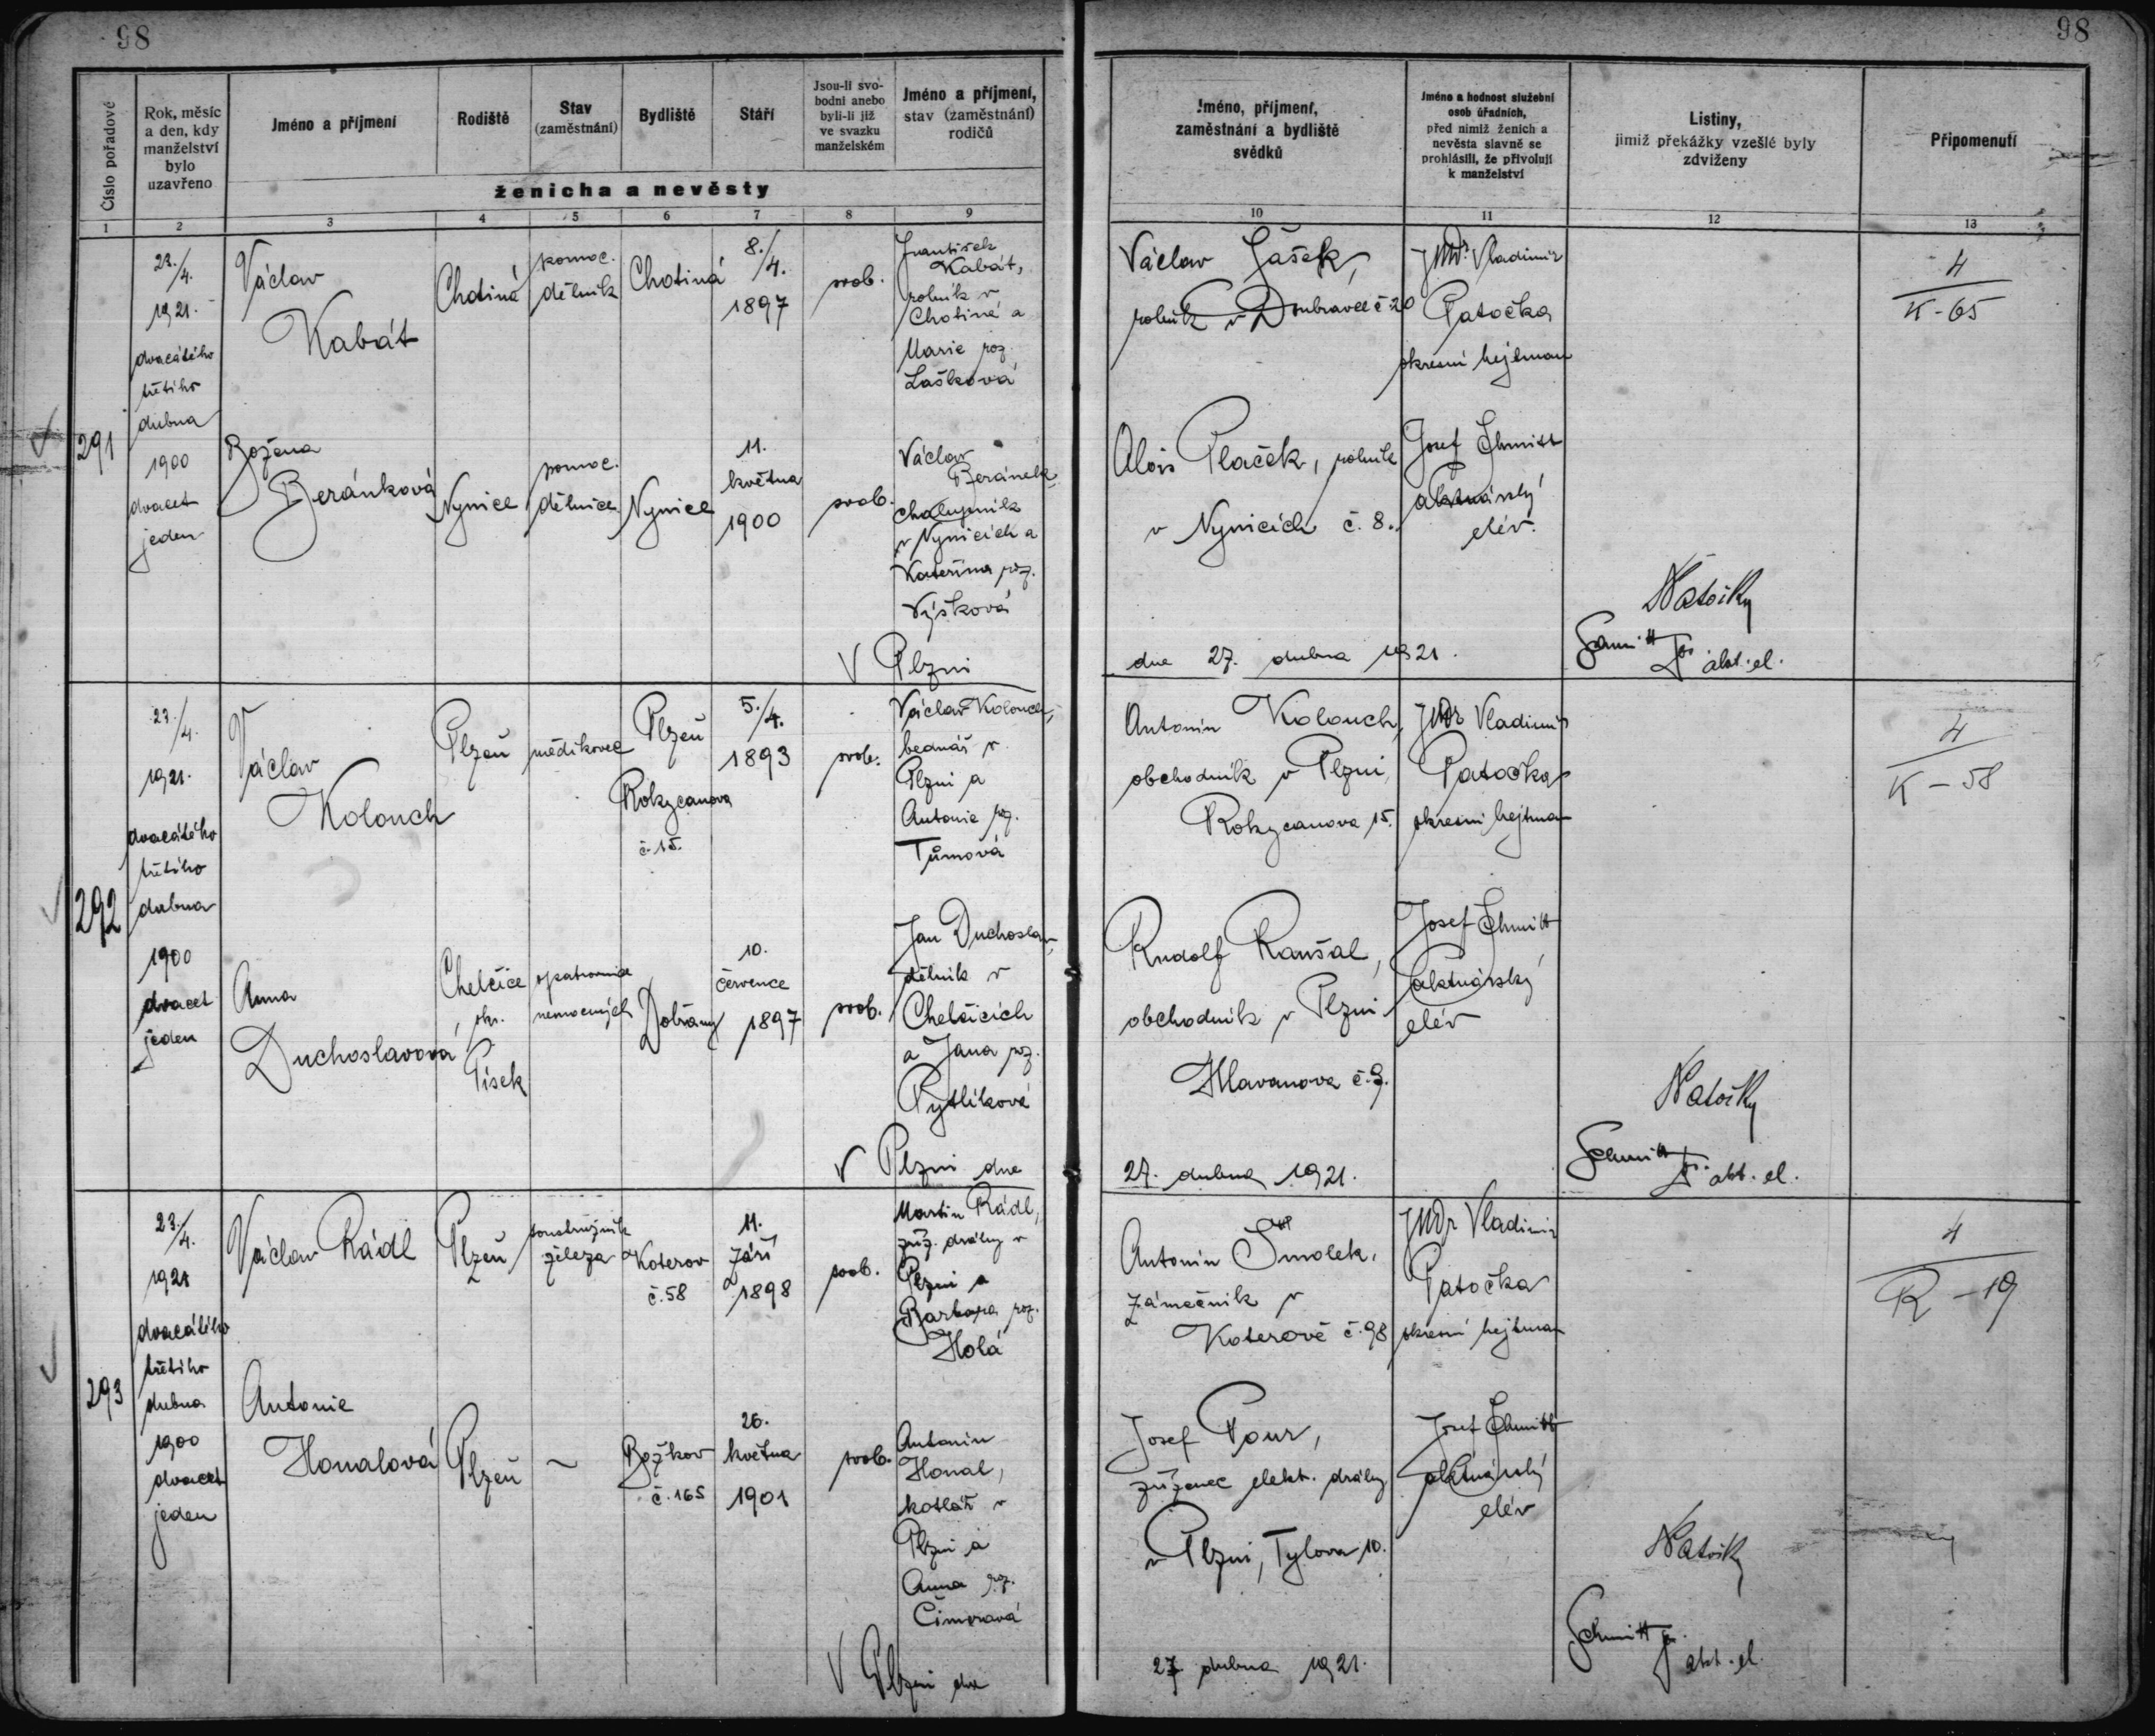 98
98
Číslo pořadové
Rok, měsíc
a den, kdy
manželství
bylo
uzavřeno
Jméno a příjmení
Rodiště
Stav
(zaměstnání)
Bydliště
Stáří
Jsou-li svo-
bodni anebo
byli-li již
ve svazku
manželském
Jméno a příjmení,
stav (zaměstnání)
rodičů
ženicha a nevěsty
Jméno, příjmení,
zaměstnání a bydliště
svědků
Jméno a hodnost služební
osob úřadních,
před nimiž ženich a
nevěsta slavně se
prohlásili, že přivolují
k manželství
Listiny,
jimiž překážky vzešlé byly
zdviženy
Připomenutí
1 2 3 4 5 6 7 8 9 10 11 12 13
291
23./4.
1921.
dvacátého
třetího
dubna
1900
dvacet
jeden
Václav
Kabát
Chotiná
pomoc.
dělník
Chotiná
8./4.
1897
svob.
František
Kabát,
rolník v
Chotiné a
Marie roz.
Lašková
Václav Jašek,
rolník v Doubravce č 20
JUDr. Vladimir
Patočka
okresní hejtman
4
K-65
Božena
Beránková
Nynice
pomoc.
dělnice
Nynice
11.
května
1900
svob.
Václav
Beránek,
chalupník
v Nynicích a
Kateřina roz.
Výšková
Alois Plaček, rolník
v Nynicích č. 8.
Josef Schmitt
aktuárský
elév.
V Plzni
dne 27. dubna 1921.
Schmitt akt. el.
292
23./4.
1921.
dvacátého
třetího
dubna
1900
dvacet
jeden
Václav
Kolouch
Plzeň
mědikovec
Plzeň
Rokycanova
č. 15.
5./4.
1893
svob.
Václav Kolouch,
bednář v
Plzni a
Antonie roz.
Tůmová
Antonín Kolouch,
obchodník v Plzni,
Rokycanova 15.
JUDr Vladimir
Patočka
okresní hejtman
4
K-58
Anna
Duchoslavová
Chelčice
okr.
Písek
opatrovnice
nemocných
Dobřany
10.
července
1897
svob.
Jan Duchoslav,
dělník v
Chelčicích
a Jana roz.
Pytlíková
Rudolf Ranšal,
obchodník v Plzni
Hlavanova č. 9.
Josef Schmitt
aktuárský
elév
V Plzni dne
27. dubna 1921.
Schmitt akt. el.
293
23./4.
1921
dvacátého
třetího
dubna
1900
dvacet
jeden
Václav Rádl
Plzeň
soustružník
železa
Koterov
č. 58
11.
září
1898
svob.
Martin Rádl,
zříz. dráhy v
Plzni a
Barbora roz.
Holá
Antonín Smolek,
zámečník v
Koterově č. 98
JUDr Vladimir
Patočka
okresní hejtman
4
R-19
Antonie
Honalová
Plzeň
~
Božkov
č. 165
26.
května
1901
svob.
Antonín
Honal,
kotlář v
Plzni a
Anna roz.
Josef Pour,
zřízenec elekt. dráhy
v Plzni, Tylova 10.
Josef Schmitt
aktuárský
elév
V Plzni dne
27. dubna 1921.
Schmitt akt. el.